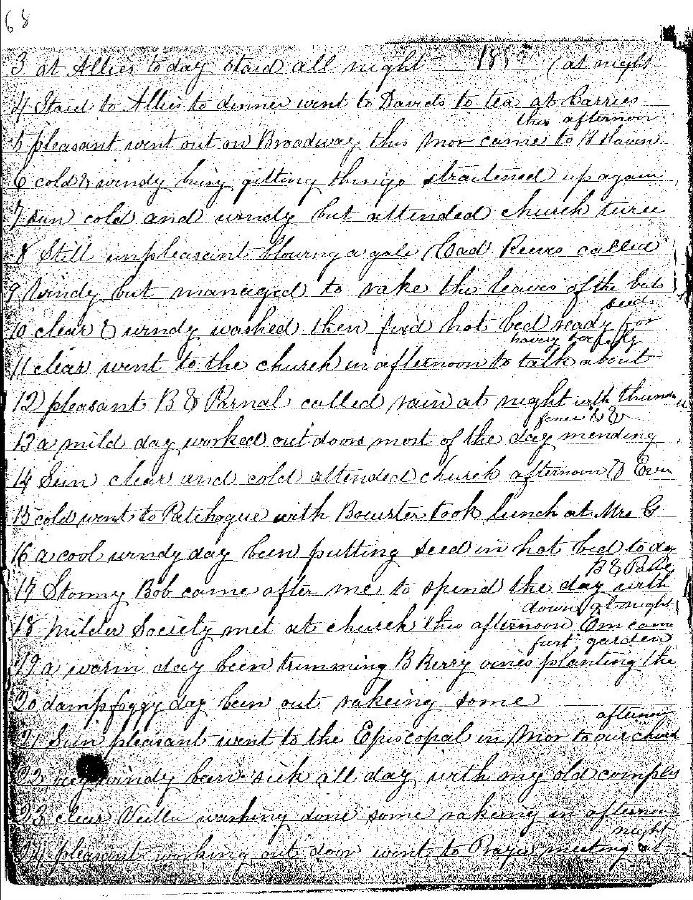 68
3 at Allies today staid all night 185 (at night
4 Staid to Allies to dinner went to Davids to tea at Carries
this afternoon
5 pleasant went out on Broadway this mor came to N Haven
6 cold & windy busy gitting things straitened up again
7 Sun cold and windy but attended church twice
8 Still unpleasant blowing a gale Cad Reeves called
9 Windy but managed to rake the leaves of the beds
seeds
10 clear & windy washed then fixd hot bed ready for
having
11 clear went to the church in afternoon to talk about
12 pleasant B & Parnal called rain at night with thunder
fence &
13 a mild day worked out doors most of the day mending
14 Sun clear and cold attended church afternoon & Even
15 cold went to Patchogue with Bewster took lunch at Mrs G
16 a cool windy day been putting seed in hot bed to day
B &
17 Stormy Bob came after me to spend the day with
down at night
18 Milder Society met at church this afternoon Em came
first garden
19 a warm day been trimming B Berry vines planting the
20 damp foggy day been out rakeing some
afternoon
21 Sun pleasant went to the Episcopal in Mor to our church
22 very windy been sick all day with my old complas
23 clear washing done some rakeing in afternoon
night
24 pleasant working out door went to Prayer meeting at